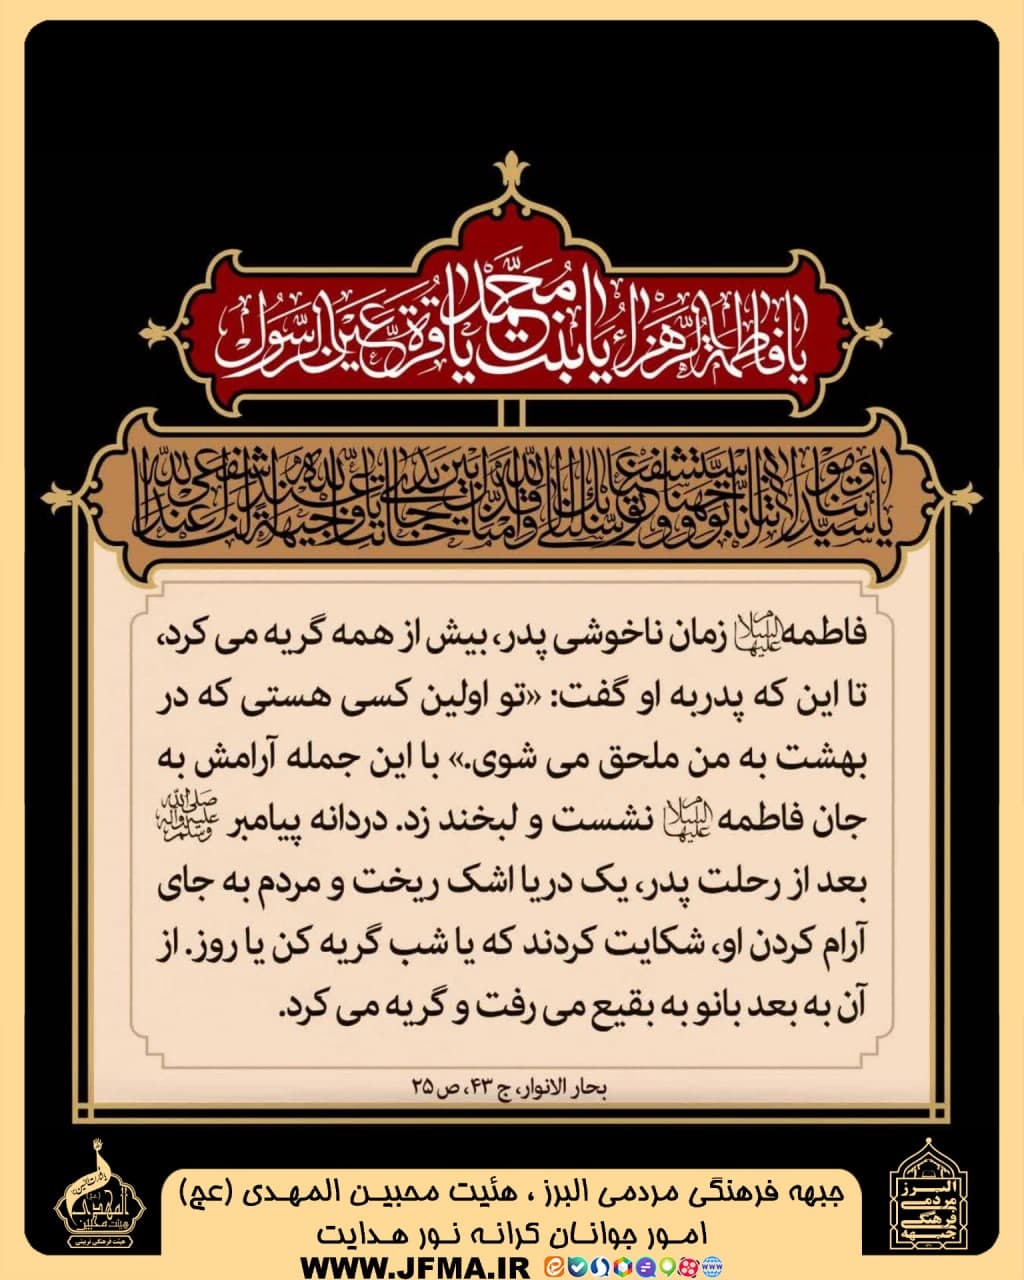 یا فاطمة الزهراء یا بنت محمد یا قرة عین الرسول
یا سیدتنا و مولاتنا انا توجهنا و استشفعنا و توسلنا بک الی الله و قدمناک بین یدی حاجاتنا یا وجیهة عند الله اشفعی لنا عند الله
فاطمه علیها السلام زمان ناخوشی پدر، بیش از همه گریه می کرد،
تا این که پدربه او گفت: «تو اولین کسی هستی که در
بهشت به من ملحق می شوی.» با این جمله آرامش به
جان فاطمه علیها السلام نشست و لبخند زد. دردانه پیامبر صلی الله علیه وآله وسلم
بعد از رحلت پدر، یک دریا اشک ریخت و مردم به جای
آرام کردن او، شکایت کردند که یا شب گریه کن یا روز. از
آن به بعد بانو به بقیع می رفت و گریه می کرد.
بحار الانوار، ج ۴۳، ص ۲۵
المهدی
هیئت محبین
هیئت فرهنگی تربیتی
البرز
مردمی
فرهنگی
جبهه
جبهه فرهنگی مردمی البرز ، هئیت محبین المهدی (عج)
امور جوانان کرانه نور هدایت
WWW.JFMA.IR